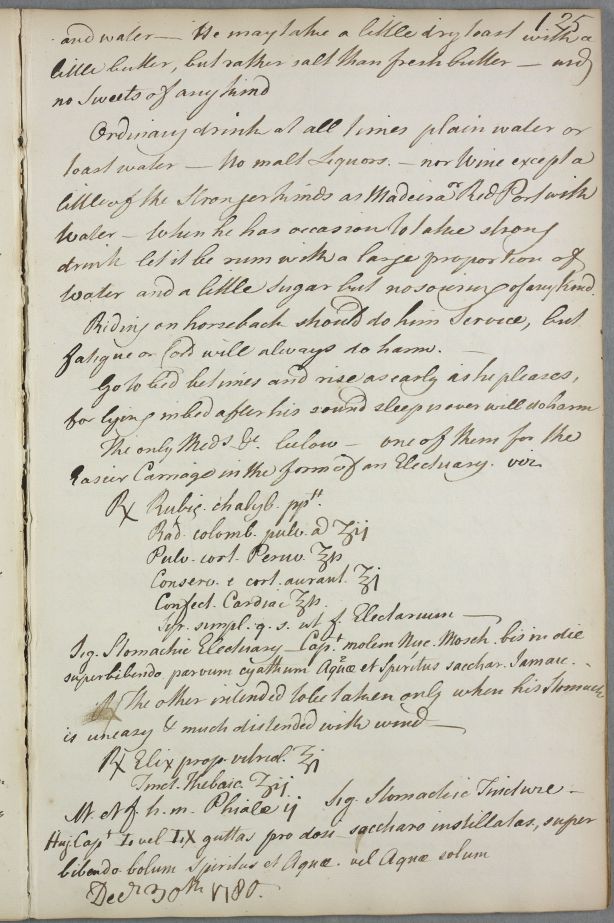 125
and water — He may take a little dry toast with a
little butter, but rather salt than fresh butter — and
no Sweets of any kind
Ordinary drink at all times plain water or
toast water — No malt Liquors. — nor Wine except a
little of the Stronger kinds as Madeira or Red Port with
Water — When he has occasion to take strong
drink let it be rum with a large proportion of
Water and a little Sugar but no souring of any kind.
Riding on horseback should do him Service, but
fatigue or Cold will always do harm. —
Go to bed betimes and rise as early as he pleases,
for lying in bed after his sound sleep is over will do harm
The only Meds &c. below — one of them for the
Easier Carriage in the form of an Electuary. viz
℞ Rubig. chalyb. pptt.
Rad. colomb. pulv. a ʒij
Pulv. cort. Peruv. ℥ß
Conserv. e cort. aurant. ℥j
Confect. Cardiac ℥ß.
Syr. simpl. q. s. ut f. Electarium —
Sig. Stomachic Electuary — Capt molem Nuc. Mosch. bis in die
superbibendo parvum cyathum Aquæ et Spiritus sacchar. Jamaic. —
The other intended to be taken only when his Stomach
is uneasy & much distended with wind —
℞ Elix. prop. vitriol. ℥j
Tinct. Thebaic. ʒij
M. et f. h. m. Phialæ ij Sig. Stomachic Tincture —
Huj. Capt L vel LX guttas pro dosi saccharo instillatas, super
bibendo bolum Spiritus et Aquæ. vel Aquæ solum
Decr 30th 1780.